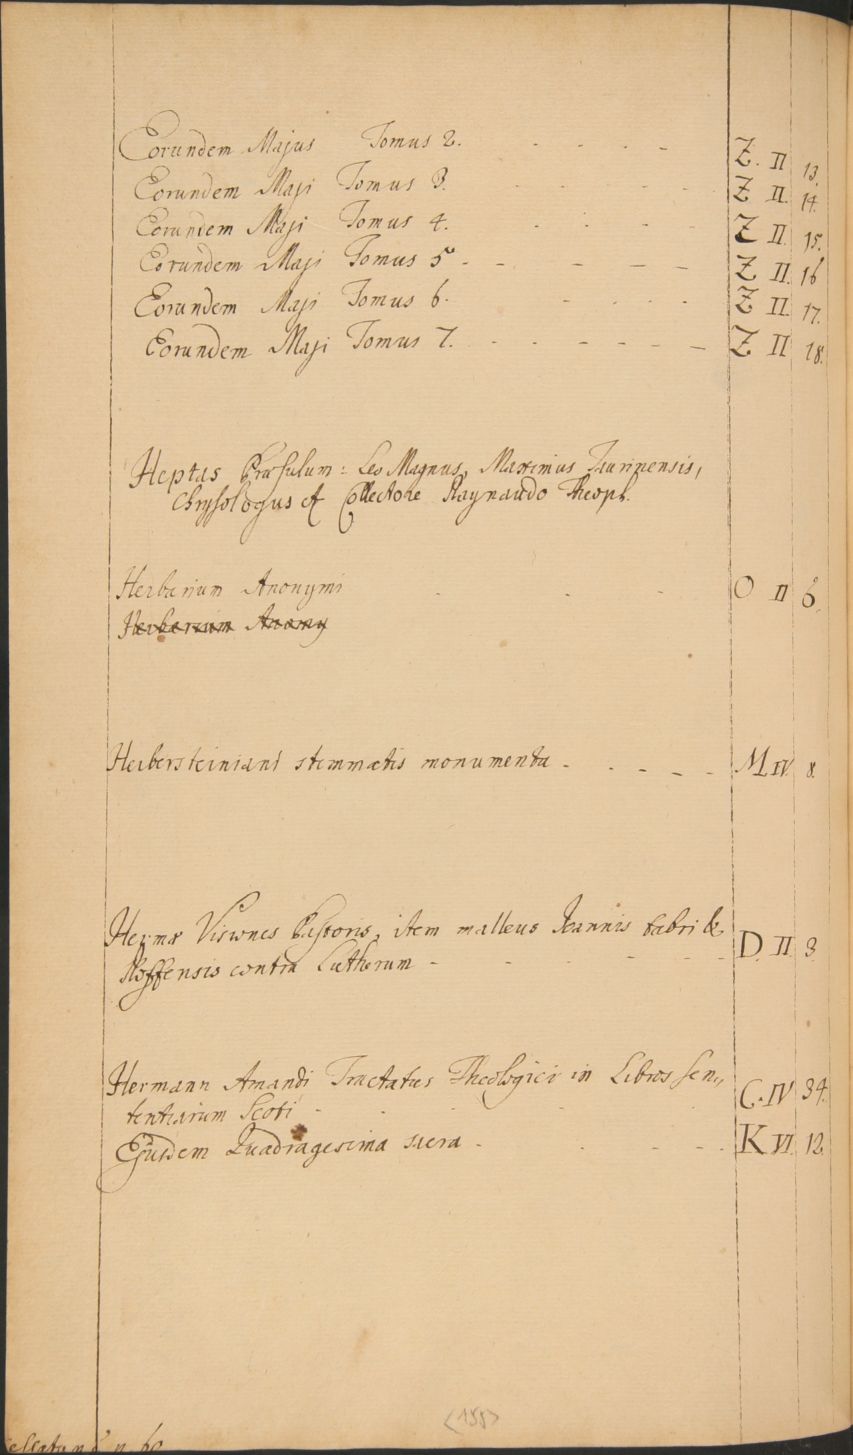 Eorundem Majus Tomus 2. Z. II 13.
Eorundem Maji Tomus 3. Z II. 14.
Eorundem Maji Tomus 4. Z II. 15.
Eorundem Maji Tomus 5 Z II. 16
Eorundem Maji Tomus 6. Z II. 17.
Eorundem Maji Tomus 7. Z II 18.
Heptas Præsulum: Leo Magnus, Maximus Taurinensis,
Chrysologus et Collectore Raynaudo Theoph.
Herbarium Anonymi O II 6.
Herbarium Anony
Herbersteiniani stemmatis monumenta M IV. 8.
Hermæ Visiones Pastoris, item malleus Joannis Fabri &
Roffensis contra Lutherum D. II 3.
Hermann Amandi Tractatus Theologici in Libros sen„
tentiarum Scoti C. IV 34.
Ejusdem Quadragesima sacra K VI. 12.
<155>